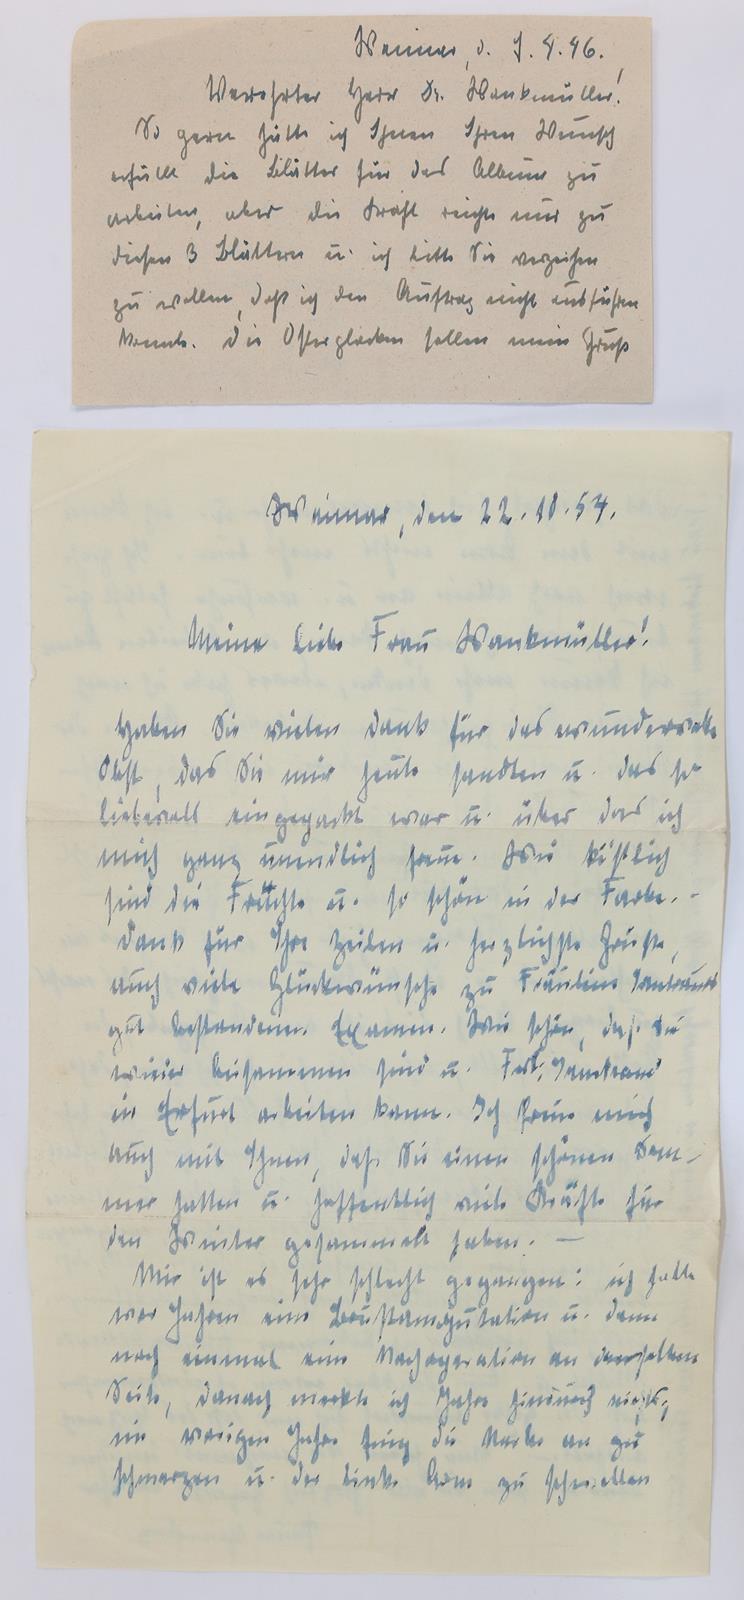 Weimar, d. 7.4.46.
Verehrter Herr Dr. Wankmüller!
So gern hätte ich Ihnen Ihren Wunsch
erfüllt die Blätter für das Album zu
arbeiten, aber die Kraft reichte nur zu
diesen 3 Blättern u. ich bitte Sie verzeihen
zu wollen, daß ich den Auftrag nicht ausführen
konnte. Die Osterglocken sollen mein Gruß
Weimar, den 22.10.54.
Meine liebe Frau Wankmüller!
Haben Sie vielen Dank für das wundervolle
Obst, das Sie mir heute sandten u. das so
liebevoll eingepackt war u. über das ich
mich ganz unendlich freue. Wie köstlich
sind die Früchte u. so schön in der Farbe. –
Dank für Ihre Zeilen u. herzlichste Grüße,
auch viele Glückwünsche zu Fräulein
gut bestandenem Examen. Wie schön, daß Sie
wieder beisammen sind u. Frl.
in Erfurt arbeiten kann. Ich freue mich
auch mit Ihnen, daß Sie einen schönen Som-
mer hatten u. hoffentlich viele Kräfte für
den Winter gesammelt haben. —
Mir ist es sehr schlecht gegangen: ich hatte
vor Jahren eine Brustamputation u. dann
noch einmal eine Nachoperation an derselben
Seite, danach merkte ich Jahre hindurch nichts,
im vorigen Jahre fing die Narbe an zu
schmerzen u. der linke Arm zu schwellen